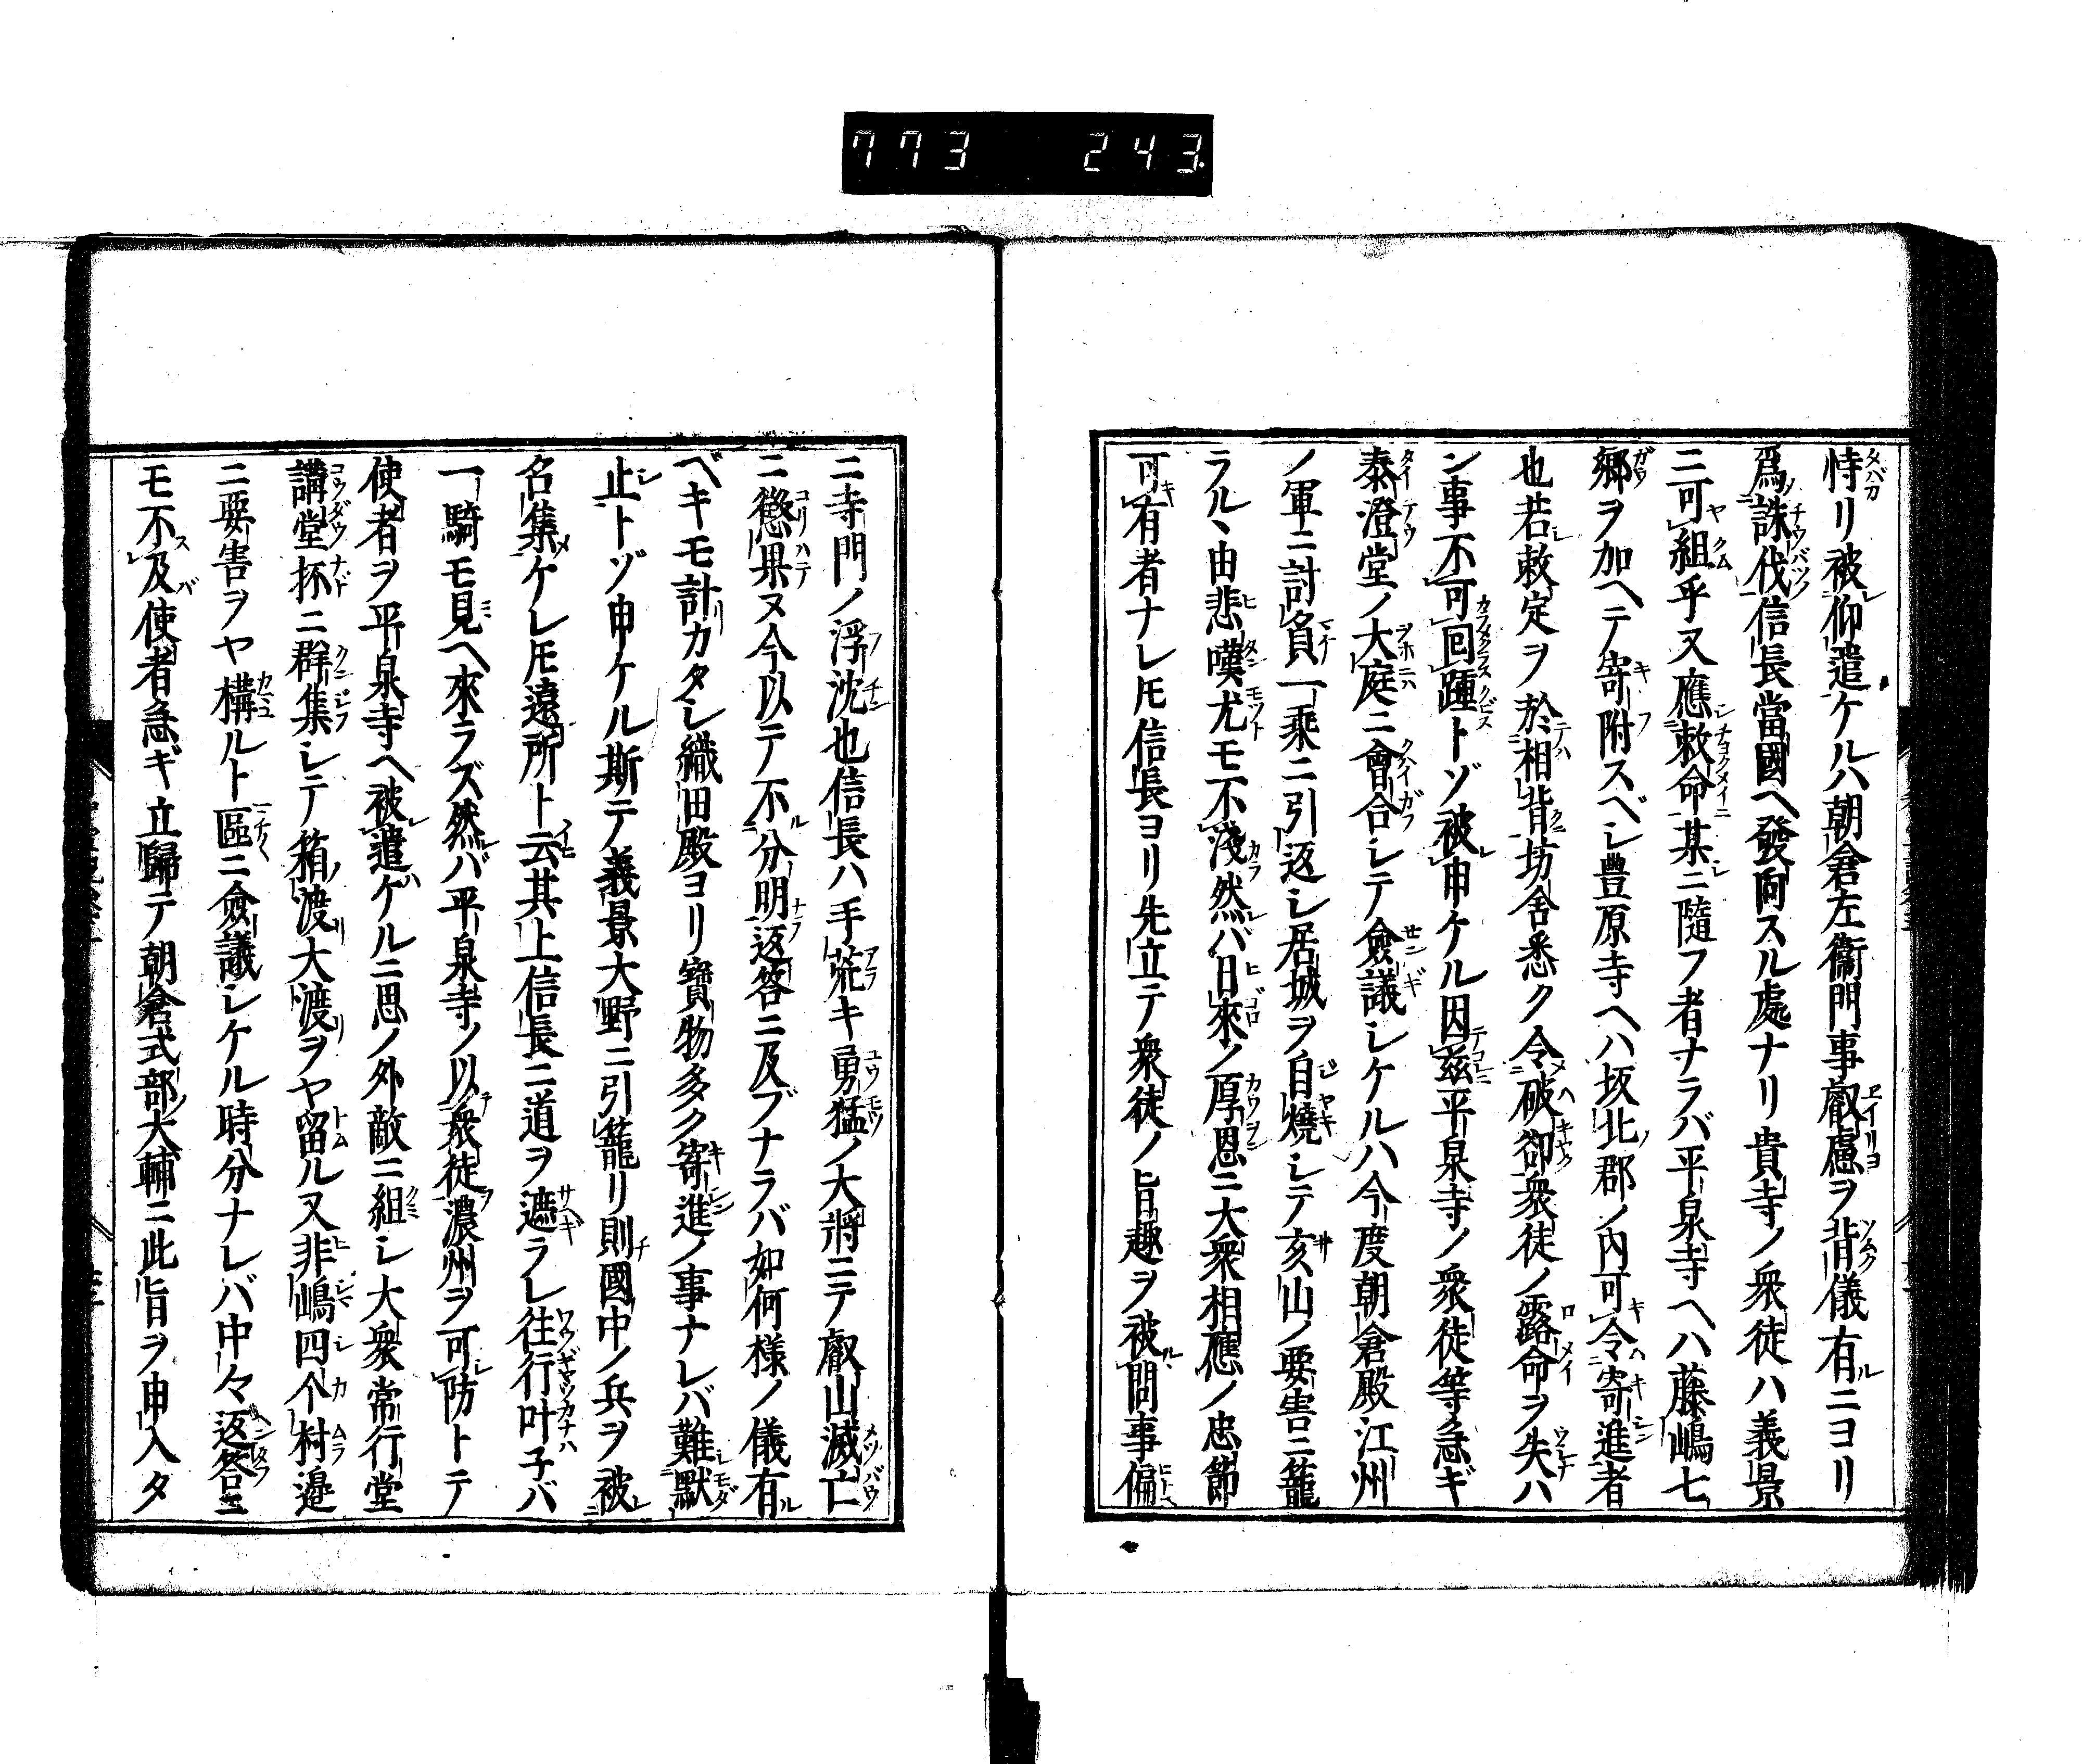 773 243
恃リ被仰遣ケルハ朝倉左衞門事叡慮ヲ背儀有ニヨリ
爲誅伐信長當國ヘ發向スル處ナリ貴寺ノ衆徒ハ義景
ニ可組乎又應敕命某ニ隨フ者ナラバ平泉寺ヘハ藤嶋七
郷ヲ加ヘテ寄附スベシ豊原寺ヘハ坂北郡ノ內可令寄進者
也若敕定ヲ於相背坊舍悉ク令破卻衆徒ノ露命ヲ失ハ
ン事不可回踵トゾ被申ケル因茲平泉寺ノ衆徒等急ギ
泰澄堂ノ大庭ニ會合シテ僉議シケルハ今度朝倉殿江州
ノ軍ニ討負一乘ニ引返シ居城ヲ自燒シテ亥山ノ要害ニ籠
ラルヽ由悲嘆尤モ不淺然バ日來ノ厚恩ニ大衆相應ノ忠節
可有者ナレ𪜈信長ヨリ先立テ衆徒ノ旨趣ヲ被問事偏
ニ寺門ノ浮沈也信長ハ手荒キ勇猛ノ大將ニテ叡山滅亡
ニ懲果ヌ今以テ不分明返答ニ及ブナラバ如何樣ノ儀有
ベキモ計カタシ織田殿ヨリ寳物多ク寄進ノ事ナレバ難默
止トゾ申ケル斯テ義景大野ニ引籠リ則國中ノ兵ヲ被
召集ケレ𪜈遠所ト云其上信長ニ道ヲ遮ラレ往行叶子バ
一騎モ見ヘ來ラズ然バ平泉寺ノ以衆徒濃州ヲ可防トテ
使者ヲ平泉寺ヘ被遣ケルニ思ノ外敵ニ組シ大衆常行堂
講堂抔ニ群集シテ箱渡大渡ヲヤ留ル又非嶋四个村邊
ニ要害ヲヤ構ルト區ニ僉議シケル時分ナレバ中々返答ニ
モ不及使者急ギ立歸テ朝倉式部大輔ニ此旨ヲ申入タ